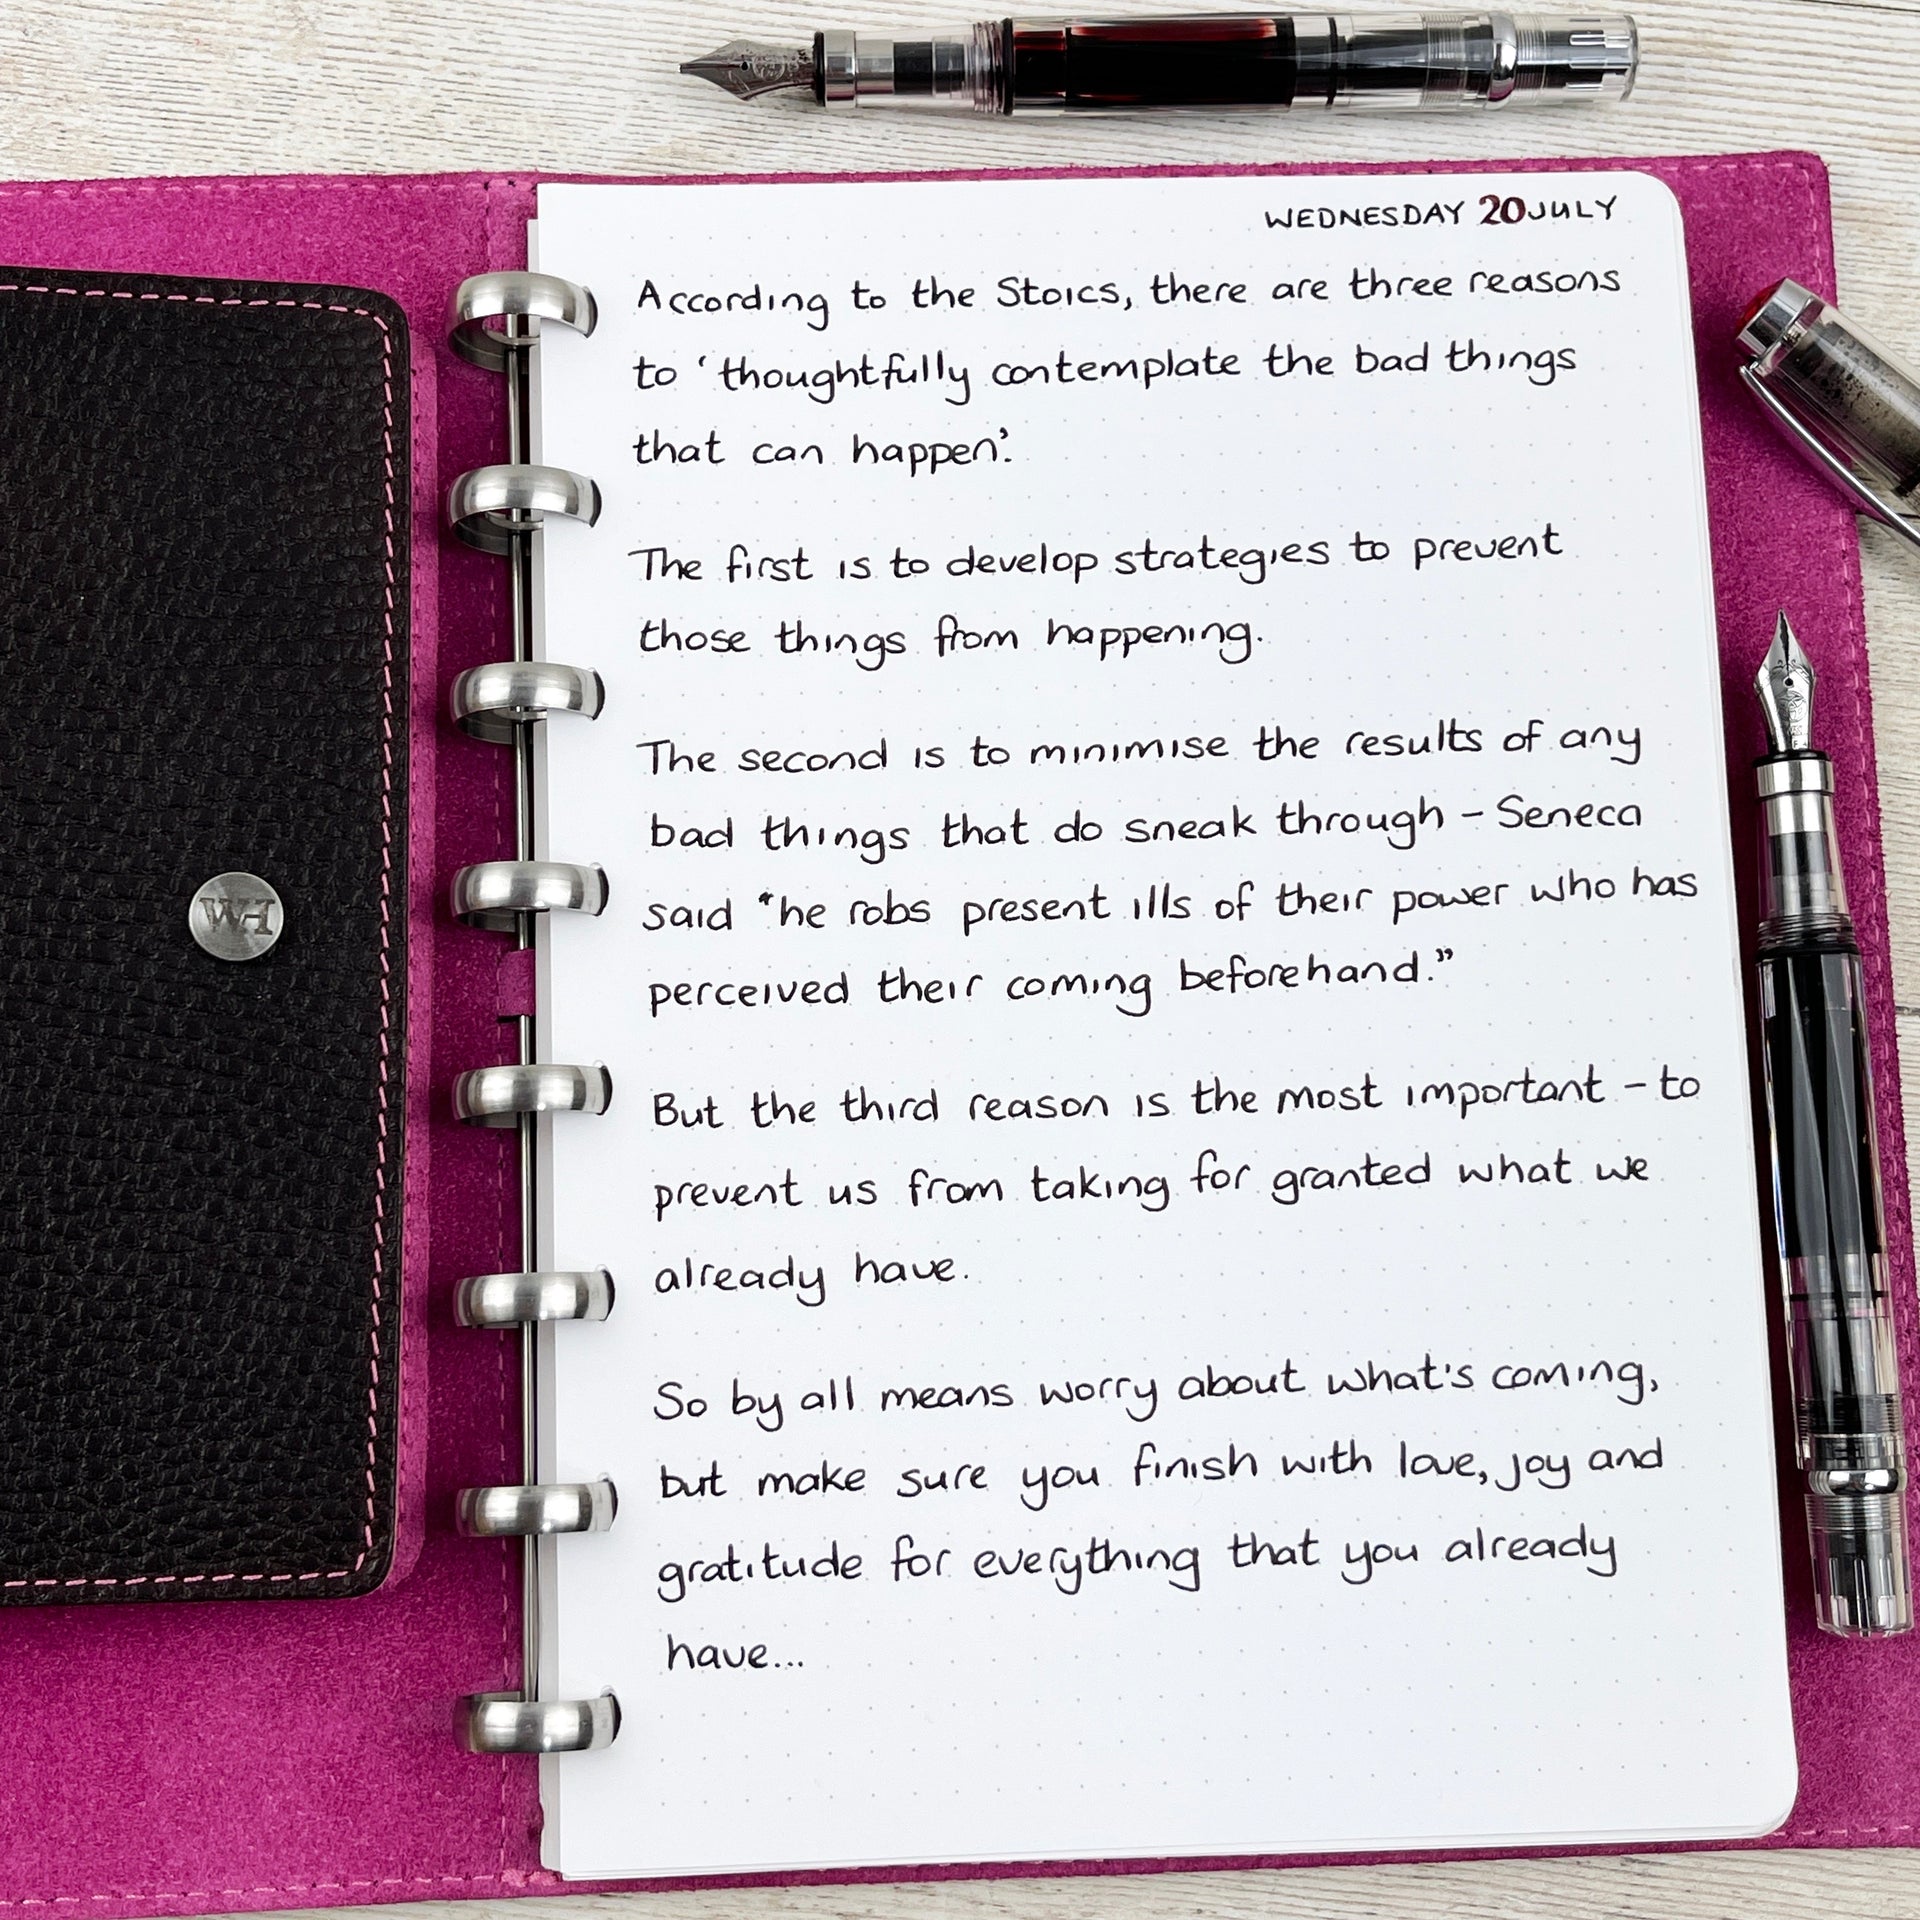 WEDNESDAY 20 JULY
According to the Stoics, there are three reasons
to 'thoughtfully contemplate the bad things
that can happen'.
The first is to develop strategies to prevent
those things from happening.
The second is to minimise the results of any
bad things that do sneak through – Seneca
said "he robs present ills of their power who has
perceived their coming beforehand."
But the third reason is the most important – to
prevent us from taking for granted what we
already have.
So by all means worry about what's coming,
but make sure you finish with love, joy and
gratitude for everything that you already
have...
WH